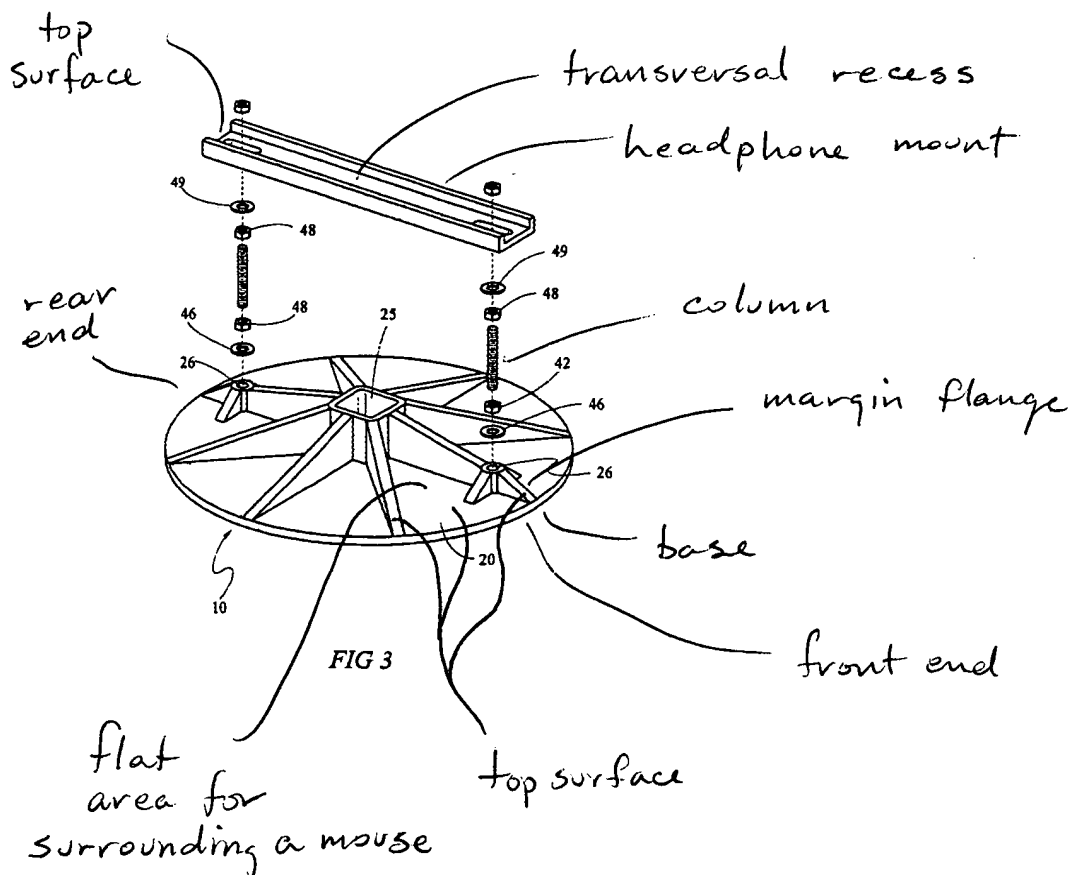 top
surface
transversal recess
headphone mount
49
48
49
48
rear
end
46
48
25
column
26
42
46
margin flange
26
base
20
10
FIG 3
front end
flat
area for
surrounding a mouse
top surface